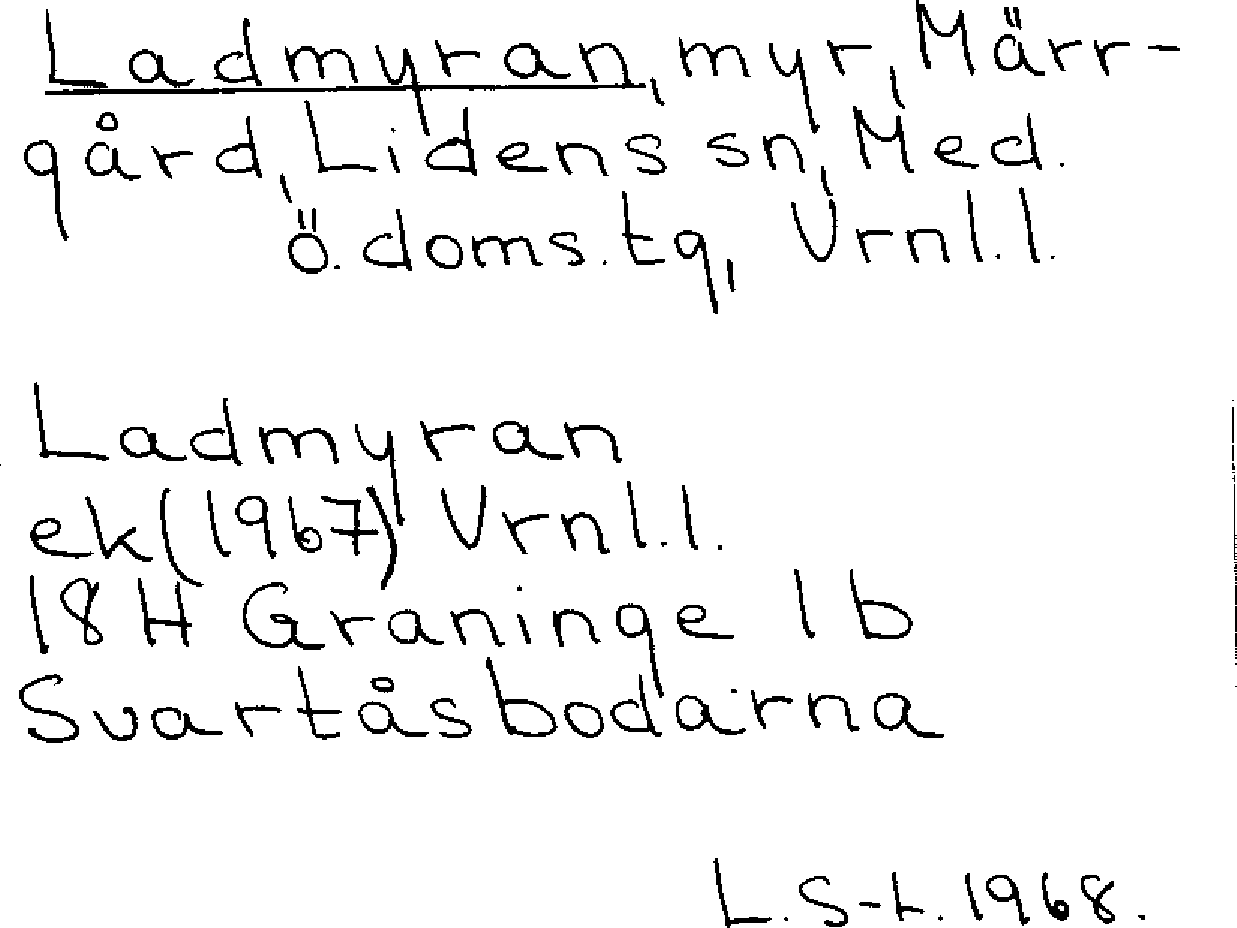 Ladmyran, myr, Märr-
gård, Lidens sn, Med.
ö. doms. tg, Vrnl.l.
Ladmyran
ek (1967) Vrnl.l.
18H Graninge 1b
Svartåsbodarna
L. S-L. 1968.